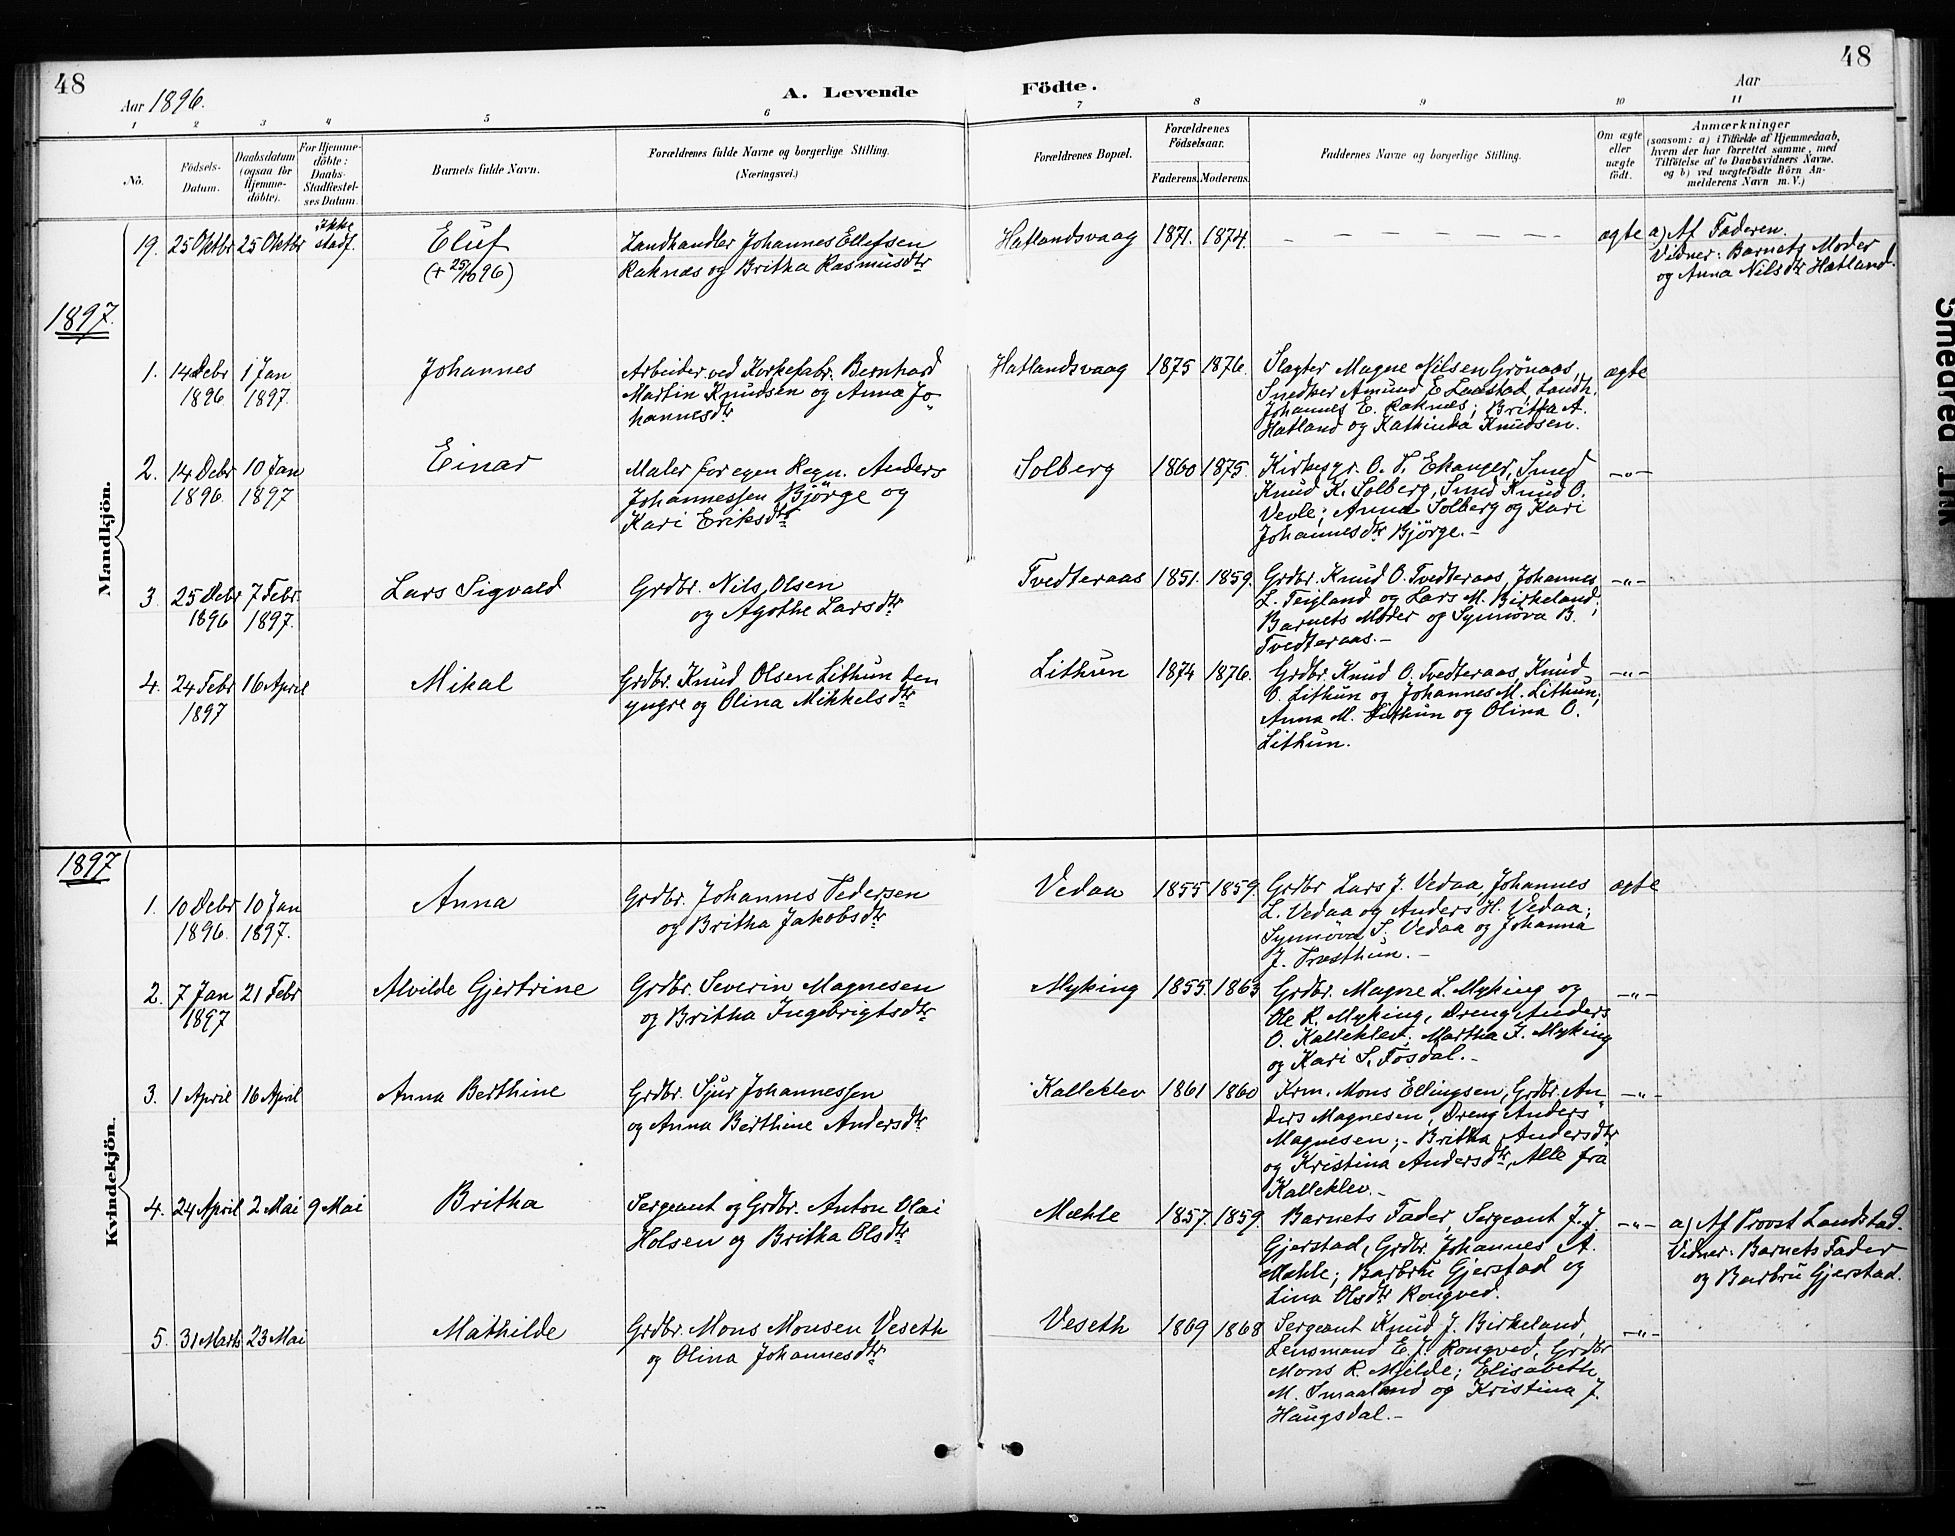 48
48
Aar 1896.
A. Levende
Födte.
Aar
1 2 3 4 5 6 7 8 9 10 11
No.
Födsels-
Datum.
Daabsdatum
(ogsaa for
Hjemme-
döbte).
For Hjemme-
döbte:
Daabs-
Stadfæstel-
ses Datum.
Barnets fulde Navn.
Forældrenes fulde Navne og borgerlige Stilling.
(Næringsvei.)
Forældrenes Bopæl.
Forældrenes
Födselsaar.
Faderens. Moderens.
Faddernes Navne og borgerlige Stilling.
Om ægte
eller
uægte
født.
Anmærkninger
(saasom: a) i Tilfælde af Hjemmedaab,
hvem der har forrettet samme, med
Tilföielse af to Daabsvidners Navne.
og b) ved uægtefödte Börn An-
melderens Navn m. V.)
Mandkjön.
19. 25 Oktbr 25 Oktbr ikke
stadf.
Eluf
(+ 25/10 96)
Landhandler Johannes Ellefsen
Raknæs og Britha Rasmusdtr
Hatlandsvaag 1871. 1874.
ægte
a) Af Faderen.
Vidner: Barnets Moder
og Anna Nilsdtr Hatland.
1897.
1. 14 Debr
1896
1 Jan
1897.
Johannes
Arbeider ved Korkefabr. Bernhard
Martin Knudsen og Anna Jo-
hannesdtr
Hatlandsvaag 1875 1876.
Slagter Magne Nilsen Grönaas,
Snedker Amund E. Laastad, Landh.
Johannes E. Raknæs; Britha A.
Hatland og Kathinka Knudsen.
ægte
2. 14 Debr
1896
10 Jan
1897
Einar
Maler for egen Regn. Anders
Johannessen Bjørge og
Kari Eriksdtr
Solberg 1860 1875.
Kirkesgr. O. T. Ekanger, Smed
Knud K. Solberg, Smed Knud O.
Vevle; Anna Solberg og Kari
Johannesdtr Bjørge.-
-"-
3 25 Debr
1896
7 Febr.
1897.
Lars Sigvald
Grdbr. Nils Olsen
og Agothe Larsdtr
Tvedteraas 1851. 1859.
Grdbr. Knud O. Tvedteraas, Johannes
L. Teigland og Lars M. Birkeland;
Barnets Moder og Synnöva B.
Tvedteraas.-
-"-
4. 24 Febr
1897
16 April
Mikal
Grdbr. Knud Olsen Lithun den
yngre og Olina Mikkelsdtr
Lithun 1874 1876.
Grdbr. Knud O. Tvedteraas, Knud
O. Lithun og Johannes M. Lithun;
Anna M. Lithun og Olina O.
Lithun.
-"-
1897
Kvindekjön.
1. 10 Debr
1896.
10 Jan
1897.
Anna
Grdbr. Johannes Pedersen
og Britha Jakobsdtr
Vedaa 1855 1859.
Grdbr Lars J. Vedaa, Johannes
L. Vedaa og Anders H. Vedaa;
Synnöva S. Vedaa og Johanna
J. Træsthun.-
ægte
2. 7 Jan
1897
21 Febr
Alvilde Gjertrine
Grdbr. Severin Magnesen
og Britha Ingebrigtsdtr
Myking 1855. 1863
Grdbr. Magne L. Myking og
Ole R. Myking, Dreng Anders
O. Kalleklev; Martha I. Myking
og Kari S. Fosdal.-
-"-
3. 1 April 16 April
Anna Berthine
Grdbr. Sjur Johannessen
og Anna Berthine Andersdtr
Kalleklev 1861 1860
Krm. Mons Ellingsen, Grdbr. An-
ders Magnesen, Dreng Anders
Magnesen;- Britha Andersdtr
og Kristina Andersdtr, Alle fra
Kalleklev.-
-"-
4. 24 April 2 Mai 9 Mai
Britha
Sergeant og Grdbr. Anton Olai
Holsen og Britha Olsdtr
Mæhle 1857. 1859.
Barnets Fader, Sergeant J. J.
Gjerstad, Grdbr. Johannes A.
Mæhle; Barbru Gjerstad og
Lina Olsdtr Rongved.
-"-
a) Af Provst Landstad.
Vidner: Barnets Fader
og Barbru Gjerstad.
5. 31 Marts 23 Mai
Mathilde
Grdbr. Mons Monsen Veseth
og Olina Johannesdtr
Veseth 1869 1868
Sergeant Knud J. Birkeland,
Lensmand E. J. Rongved, Grdbr
Mons R. Mjelde; Elisabeth
M. Smaaland og Kristina J.
Haugsdal.-
-"-